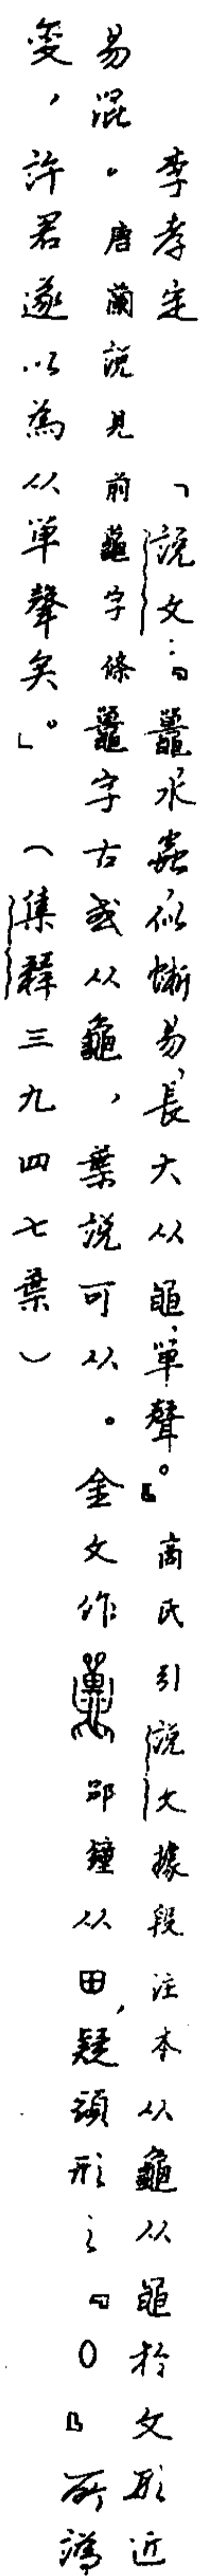 李孝定　「說文：『鼉水蟲似蜥易，長大从黽，單聲。』商氏引說文據段注本从龜从黽於文形近
易混。唐蘭說見前龜字條鼉字古或从龜，葉說可从。金文作　郘鐘从田，疑頭形之『O』所譌
變，許君遂以為从單聲矣。」（集釋三九四七葉）